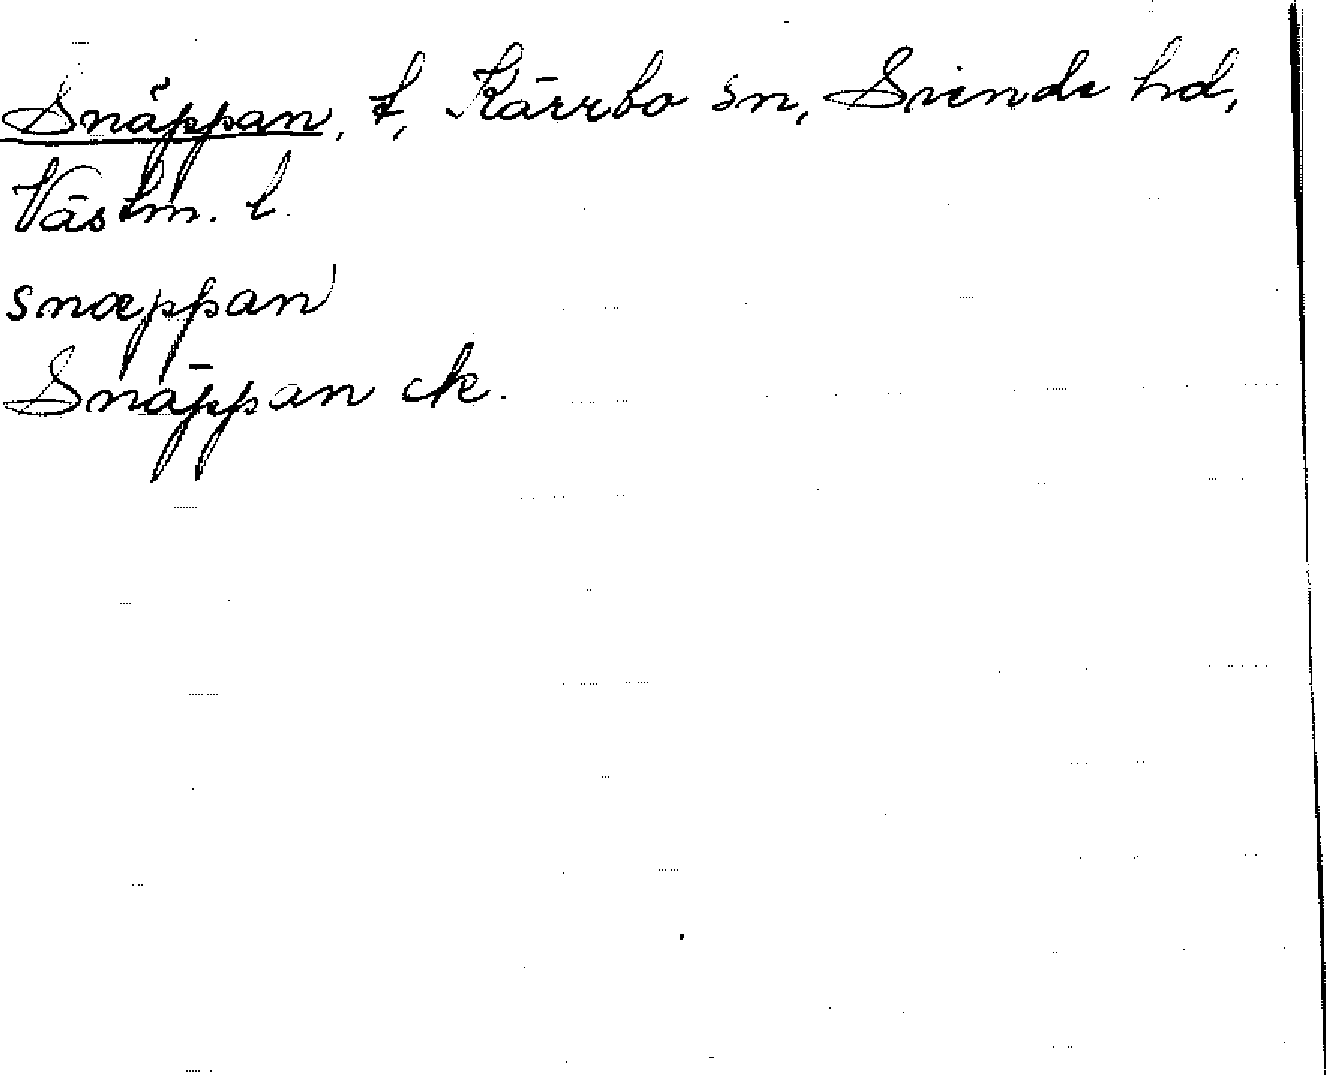 Snäppan, t, Kärrbo sn, Siende hd,
Västm. l.
snæppan
Snäppan ck.